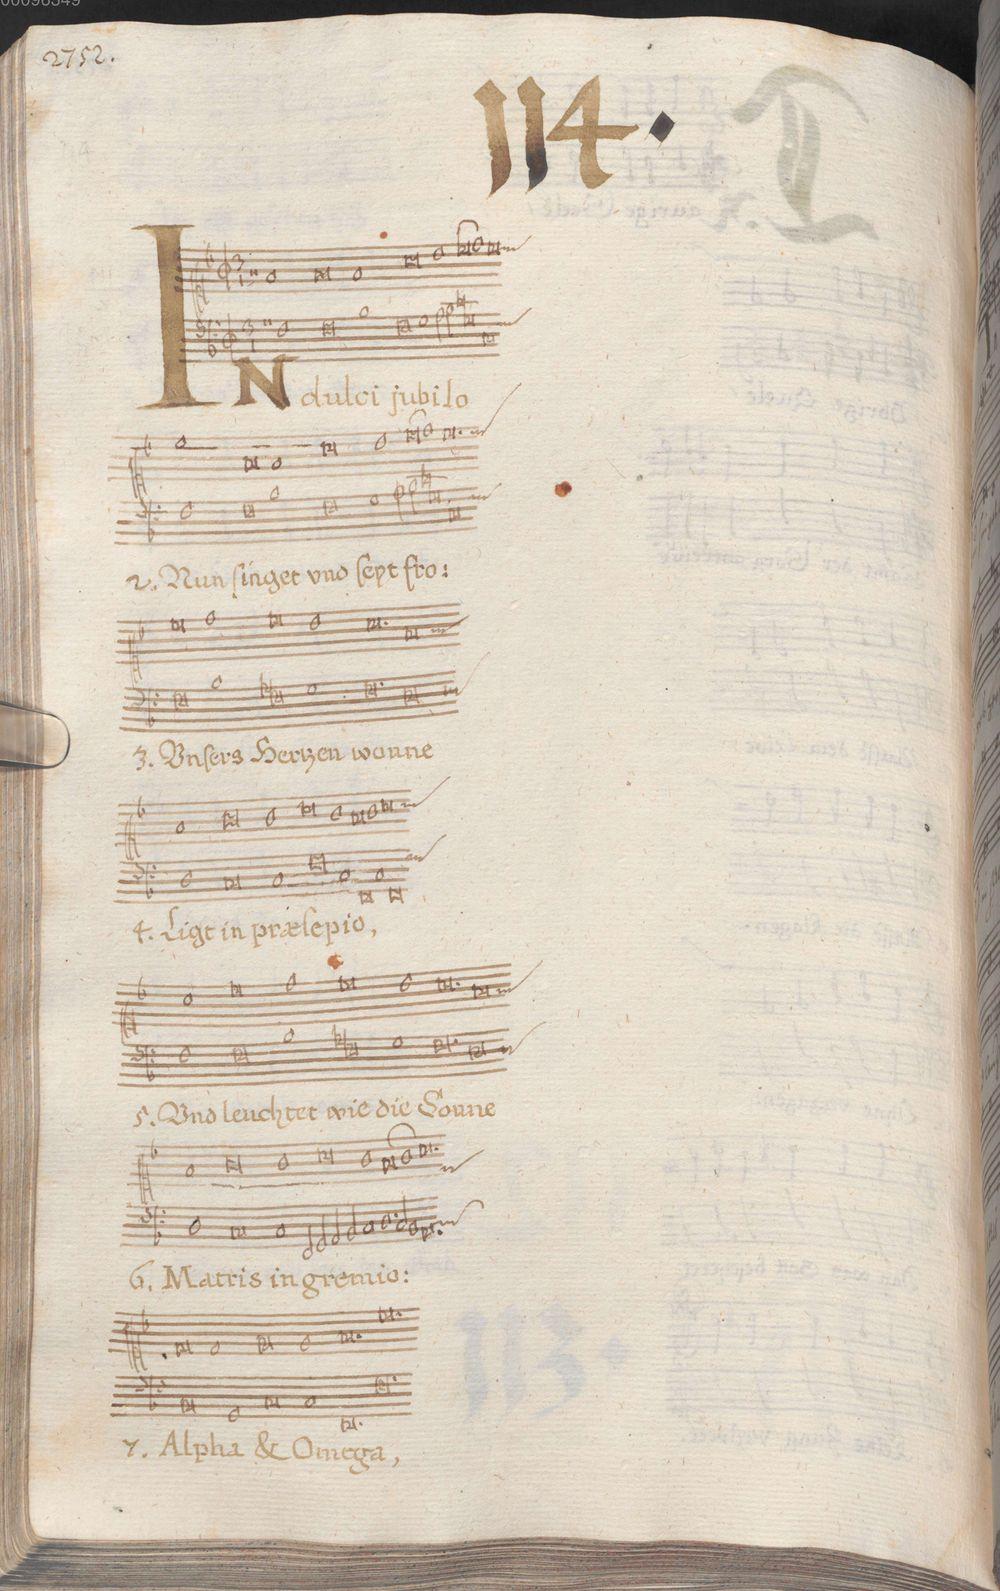 00098349
2752.
114.
IN dulci jubilo
2. Nun singet vnd seyt fro:
3. Vnsers Hertzen wonne
4. Ligt in præsepio,
5. Vnd leuchtet wie die Sonne
6. Matris in gremio:
7. Alpha & Omega,